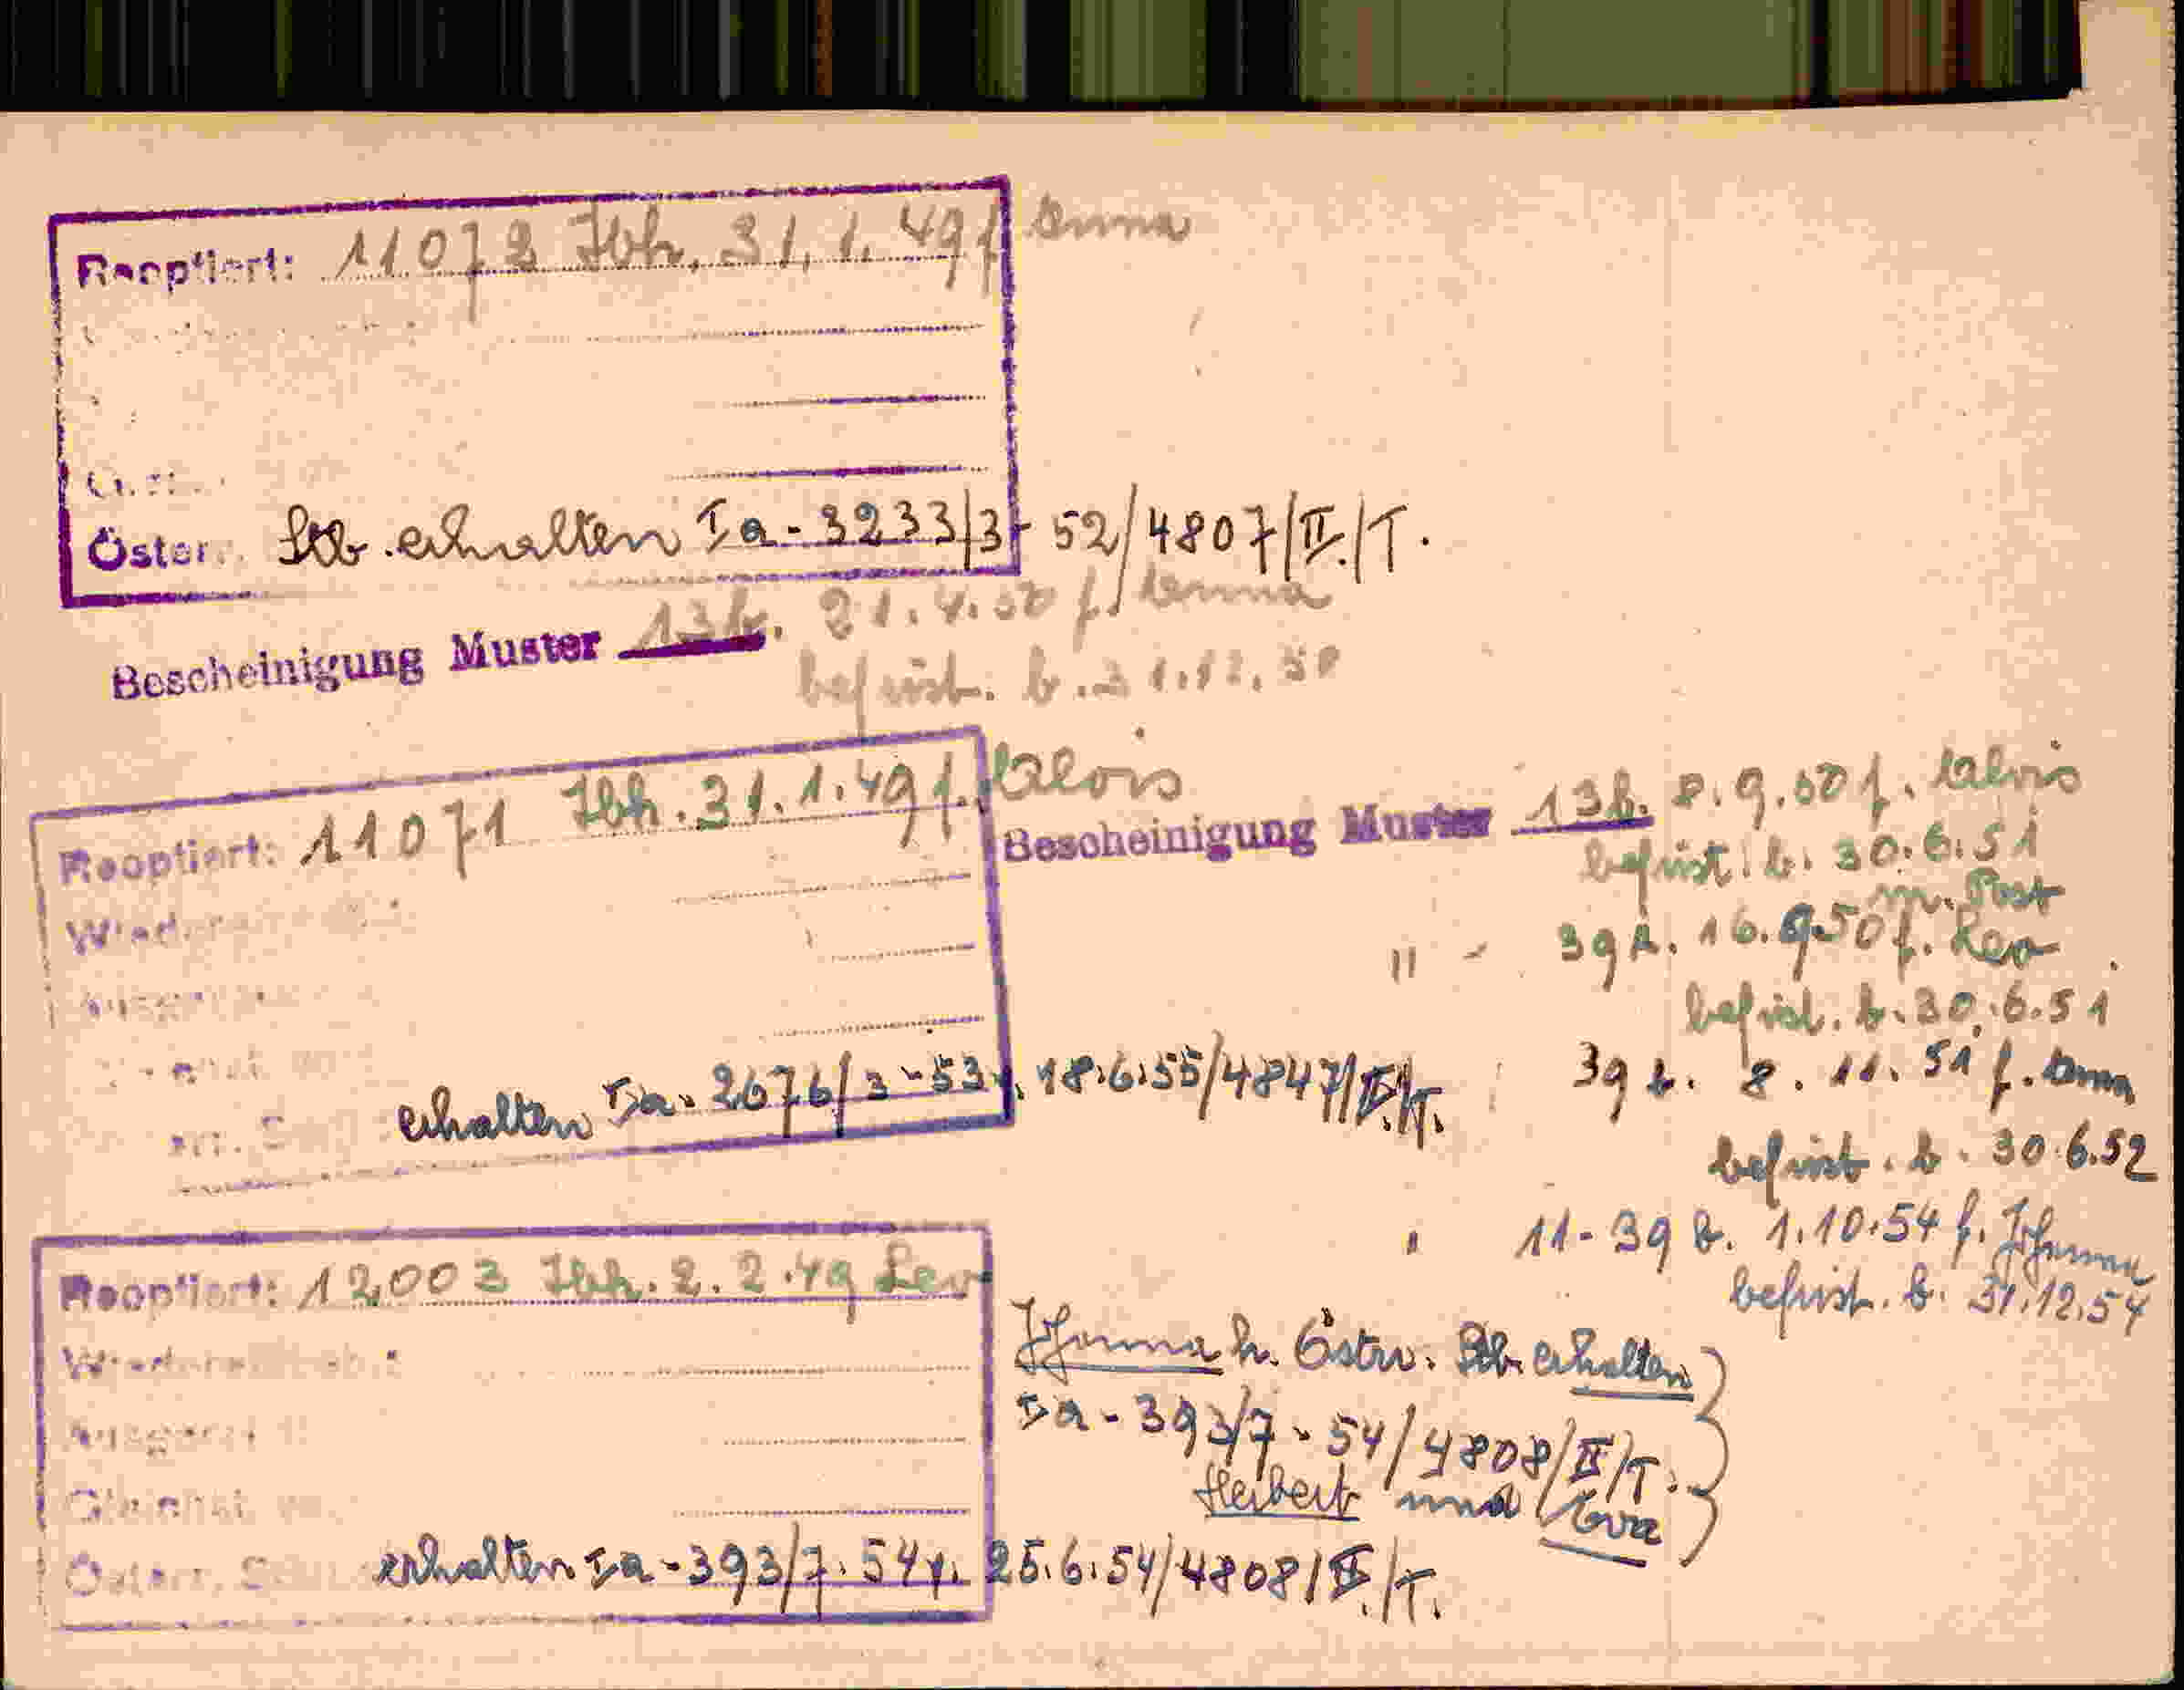 Reoptiert: 11072 Ibk. 31.1.49 f. Anna
Österr. Stb. erhalten Ia-3233/3-52/4807/II./T.
Bescheinigung Muster 13b. 21.4.50 f. Anna
befrist. b. 31.12.50
Reoptiert: 11071 Ibk. 31.1.49 f. Alois
Bescheinigung Muster 13b. 8.9.50 f. Alois
befrist. b. 30.6.51
m. Post
" - 39b. 16.9.50 f. Leo
befrist. b. 30.6.51
erhalten Ia-2676/3-53 v. 18.6.55/4847/II./T.
39b. 8.11.51 f. Anna
befrist. b. 30.6.52
11-39b. 1.10.54 f. Johanna
befrist. b. 31.12.54
Reoptiert: 12003 Ibk. 2.2.49 Leo
Johanna h. Österr. Stb. erhalten
Ia-393/7-54/4808/II/T.
Herbert und Eva
Österr. erhalten Ia-393/7-54 v. 25.6.54/4808/II./T.